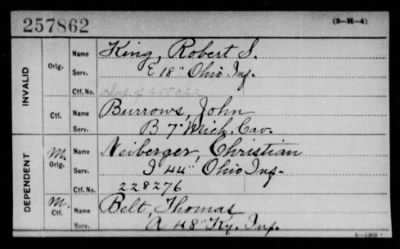 257862
(3-H-4)
INVALID
Orig.
Name King, Robert S.
Serv. E 18" Ohio Inf.
Ctf. No.
Ctf.
Name Burrows, John
Serv. B 7" Mich. Cav.
DEPENDENT
M. Orig.
Name Neiberger, Christian
Serv. I 44" Ohio Inf.
Ctf. No. 228276
M. Ctf.
Name Belt, Thomas
Serv. A 48" Ky. Inf.